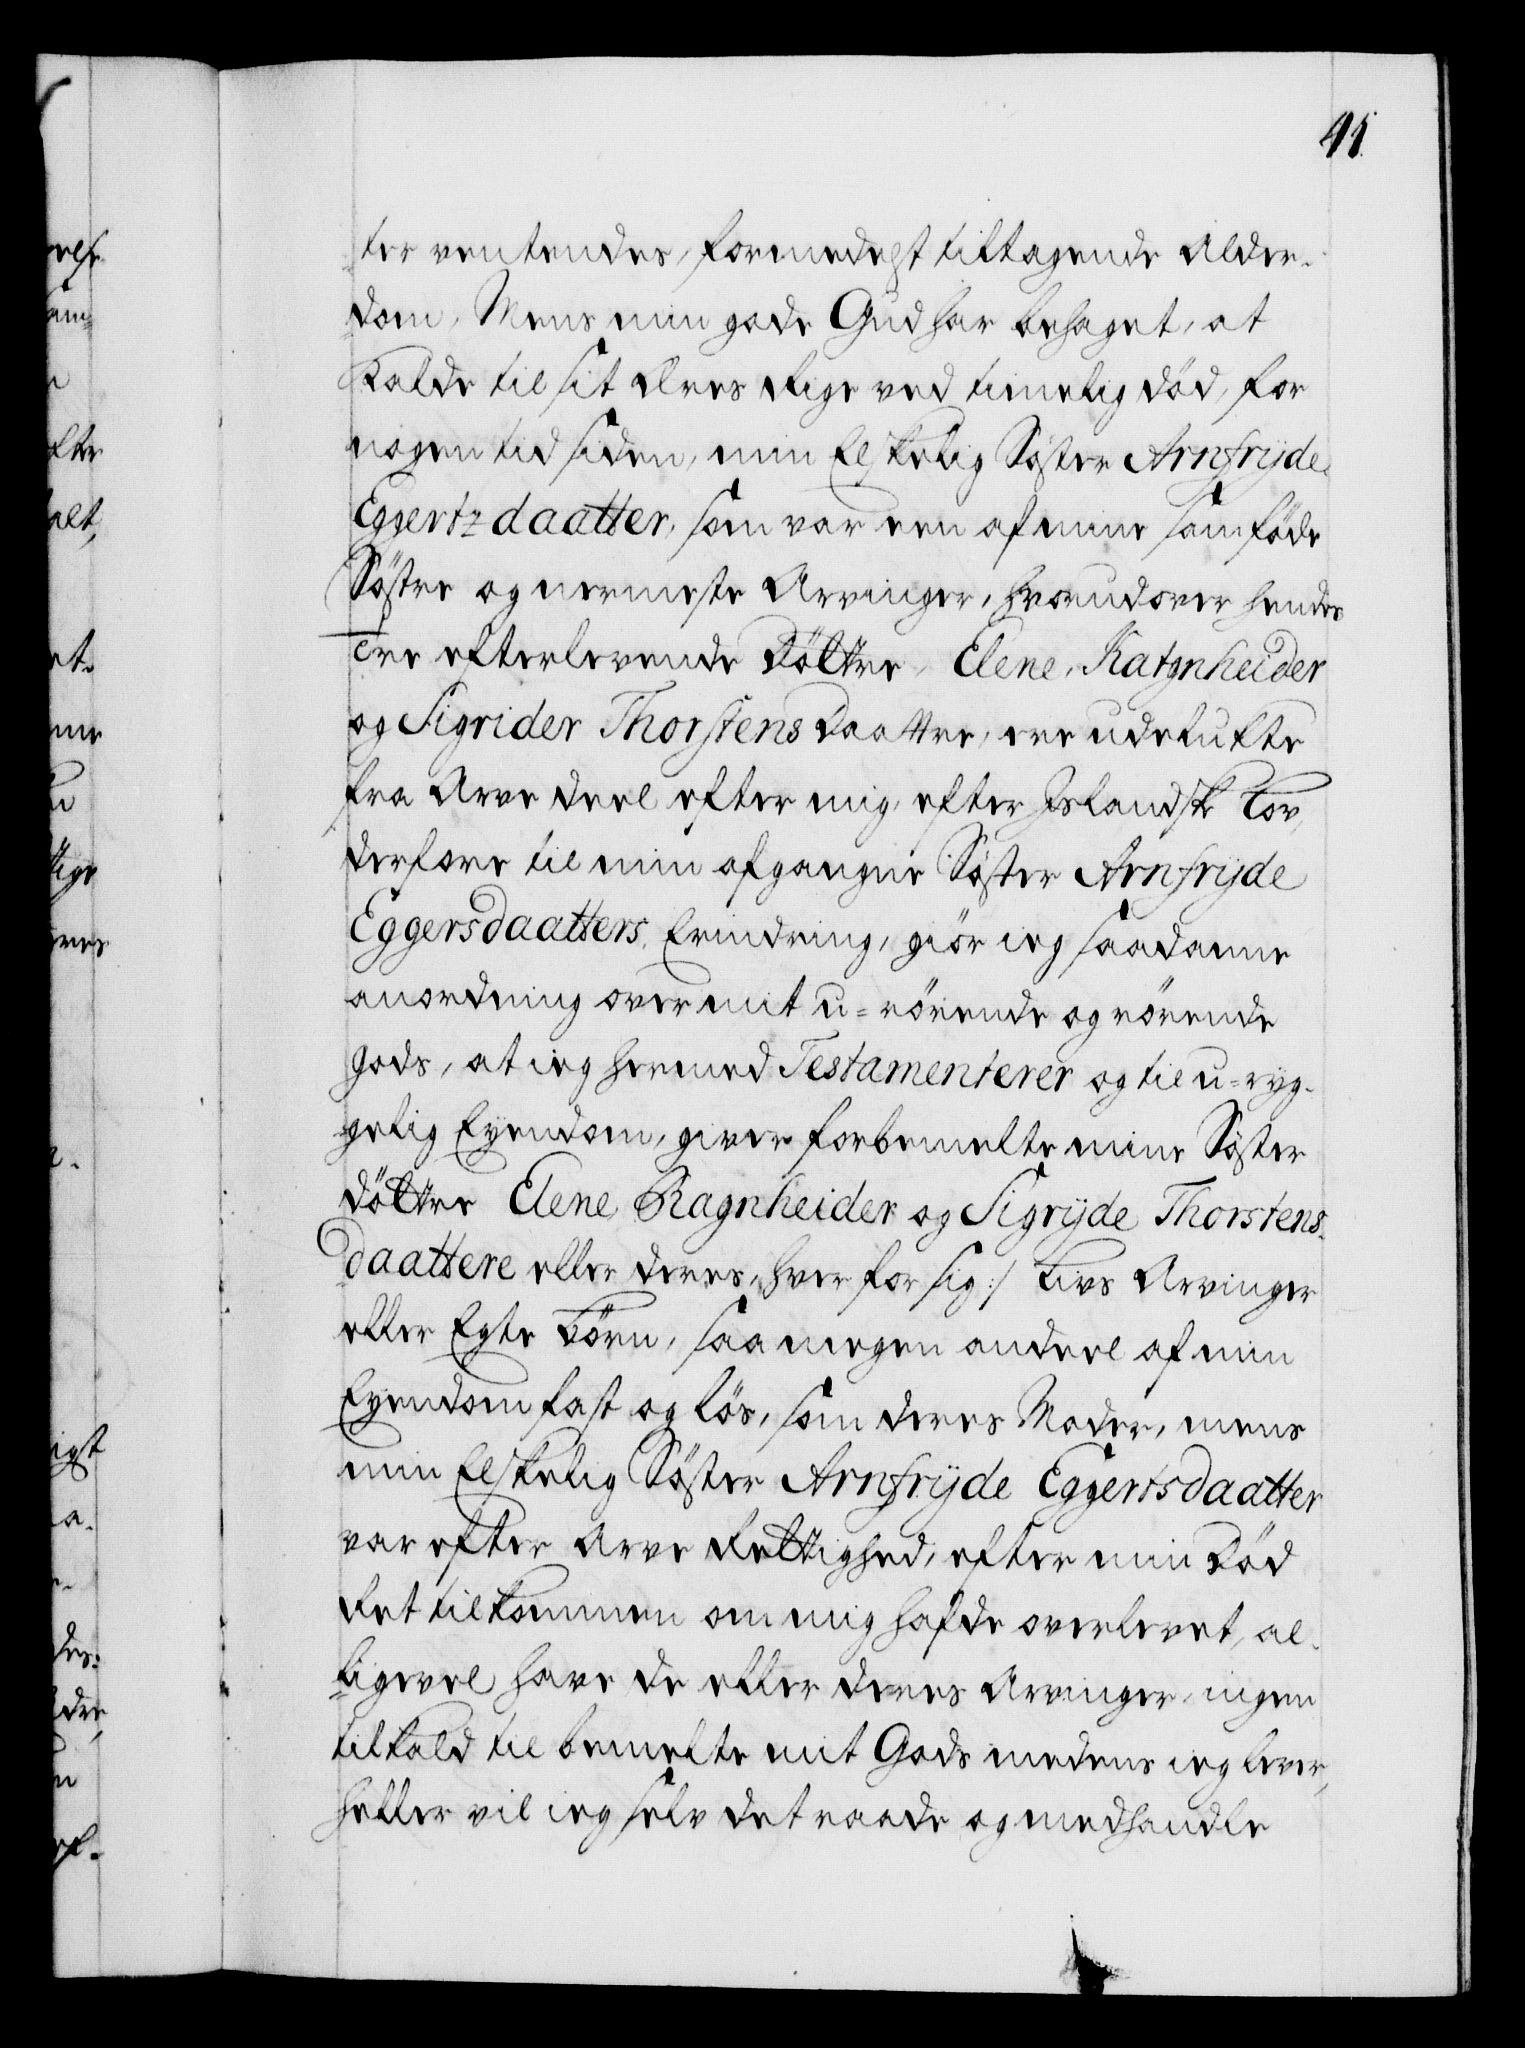 41.
ter ventendes, formedelst tiltagende Alder-
dom, Mens min gode Gud har behaget, at
kalde til sit Æres Rige ved timelig död, for
nogen tid siden, min Elskelig Söster Arnfrijde
Eggertz daatter, som var een af mine samföde
Söstre og nermeste Arvinger, hvorudover hendes
tre efterlevende Döttre, Elene, Ratgnheider
og Sigrider Thorstens Daattre, ere udelukte
fra Arve deel efter mig, efter Islandsk Lov,
derfore til min afgangne Söster Arnfrijde
Eggersdaatters Erindring, giör ieg saadanne
anordning over mit u-rörende og rörende
gods, at ieg hermed Testamenterer og til u-ryg-
gelig Eyendom, giver forbemelte mine Söster
döttre Elene, Ragnheider og Sigrijde Thorstens
daattere eller deres, hver for sig :/ Livs Arvinger
eller Egte Börn, saa megen andeel af min
Eyendom fast og lös, som deres Moder, mens
min Elskelig Söster Arnfrijde Eggertsdaatter
var efter Arve Rettighed, efter min Död
Ret tilkommen om mig hafde overlevet, al-
ligevel have de eller deres Arvinger, ingen
tiltald til bemelte mit Gods medens ieg lever,
heller vil ieg selv det raade og medhandle